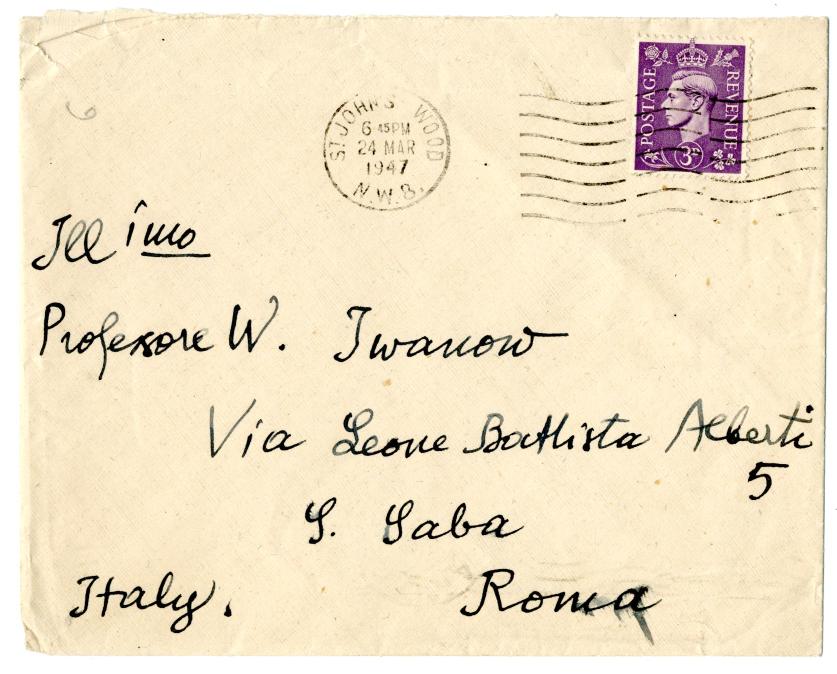 6
ST JOHN'S WOOD
6 45 PM
24 MAR
1947
N.W.8.
POSTAGE REVENUE
3D
Ill imo
Professore W. Iwanow
Via Leone Battista Alberti
5
S. Saba
Italy. Roma